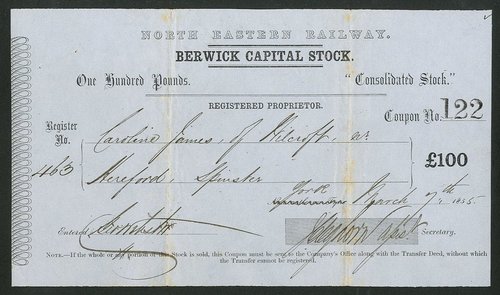 NORTH EASTERN RAILWAY.
BERWICK CAPITAL STOCK.
One Hundred Pounds. "Consolidated Stock."
REGISTERED PROPRIETOR.
Coupon No. 122
Register No. 463
Caroline James, of
Hereford, Spinster
£100
York March 7th 1855.
Entered
Secretary.
NOTE.—If the whole or any portion of this Stock is sold, this Coupon must be sent to the Company's Office along with the Transfer Deed, without which
the Transfer cannot be registered.